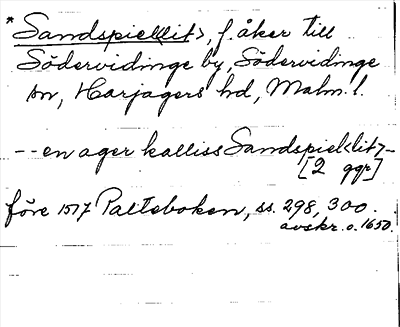 * Sandspiel<lit>, f. åker till
Södervidinge by, Södervidinge
sn, Harjagers hd, Malm. l.
-- en ager kalliss Sandspiel<lit> --
[2 ggr]
före 1517 Palteboken, ss. 298, 300.
avskr. o. 1650.